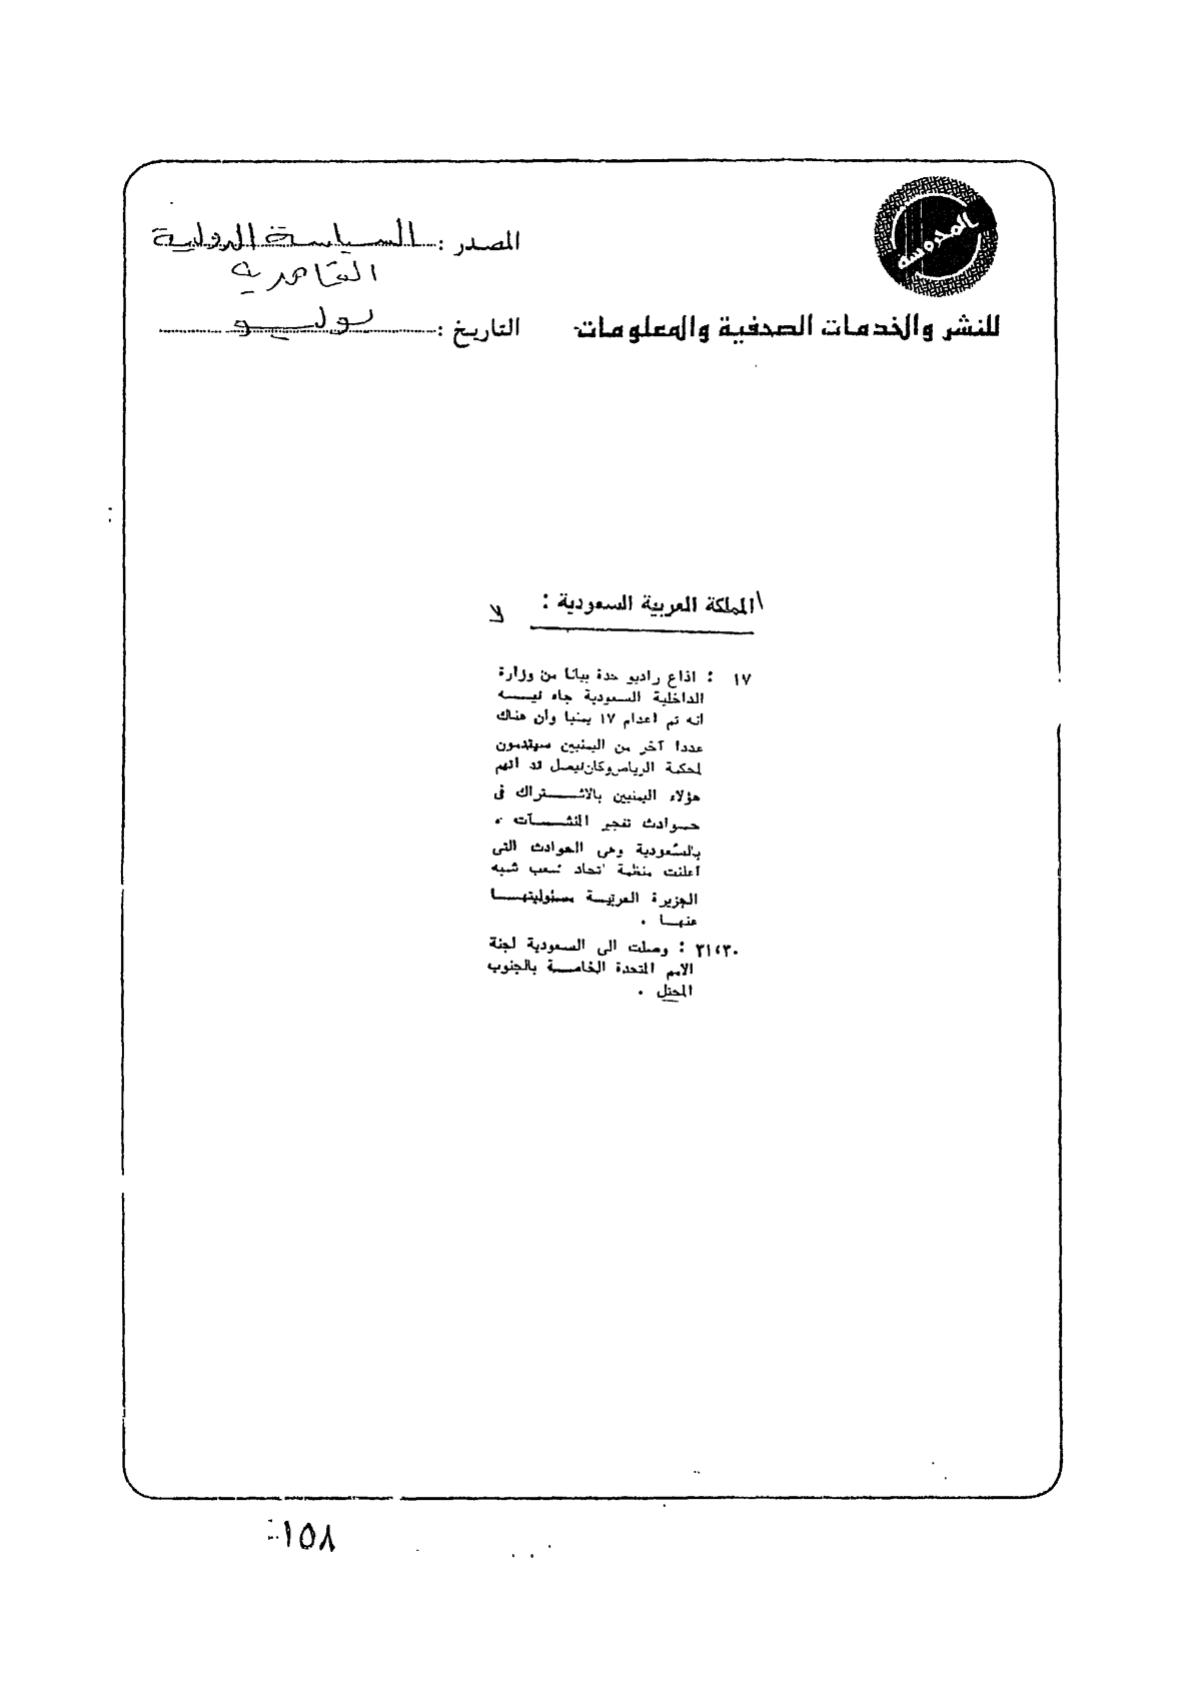 المحروسة
المصدر : السياسة الدولية
القاهرية
للنشر والخدمات الصحفية والمعلومات
التاريخ : يوليو
المملكة العربية السعودية :
١٧ : اذاع راديو جدة بيانا من وزارة
الداخلية السعودية جاء فيه
انه تم اعدام ١٧ يمنيا وأن هناك
عددا آخر من اليمنيين سيقدمون
لمحكمة الرياض وكان فيصل قد اتهم
هؤلاء اليمنيين بالاشتراك فى
حوادث تفجير المنشآت
بالسعودية وهى الحوادث التى
أعلنت منظمة اتحاد شعب شبه
الجزيرة العربية مسئوليتها
عنها .
٣٠،٣١ : وصلت الى السعودية لجنة
الامم المتحدة الخاصة بالجنوب
المحتل .
١٥٨